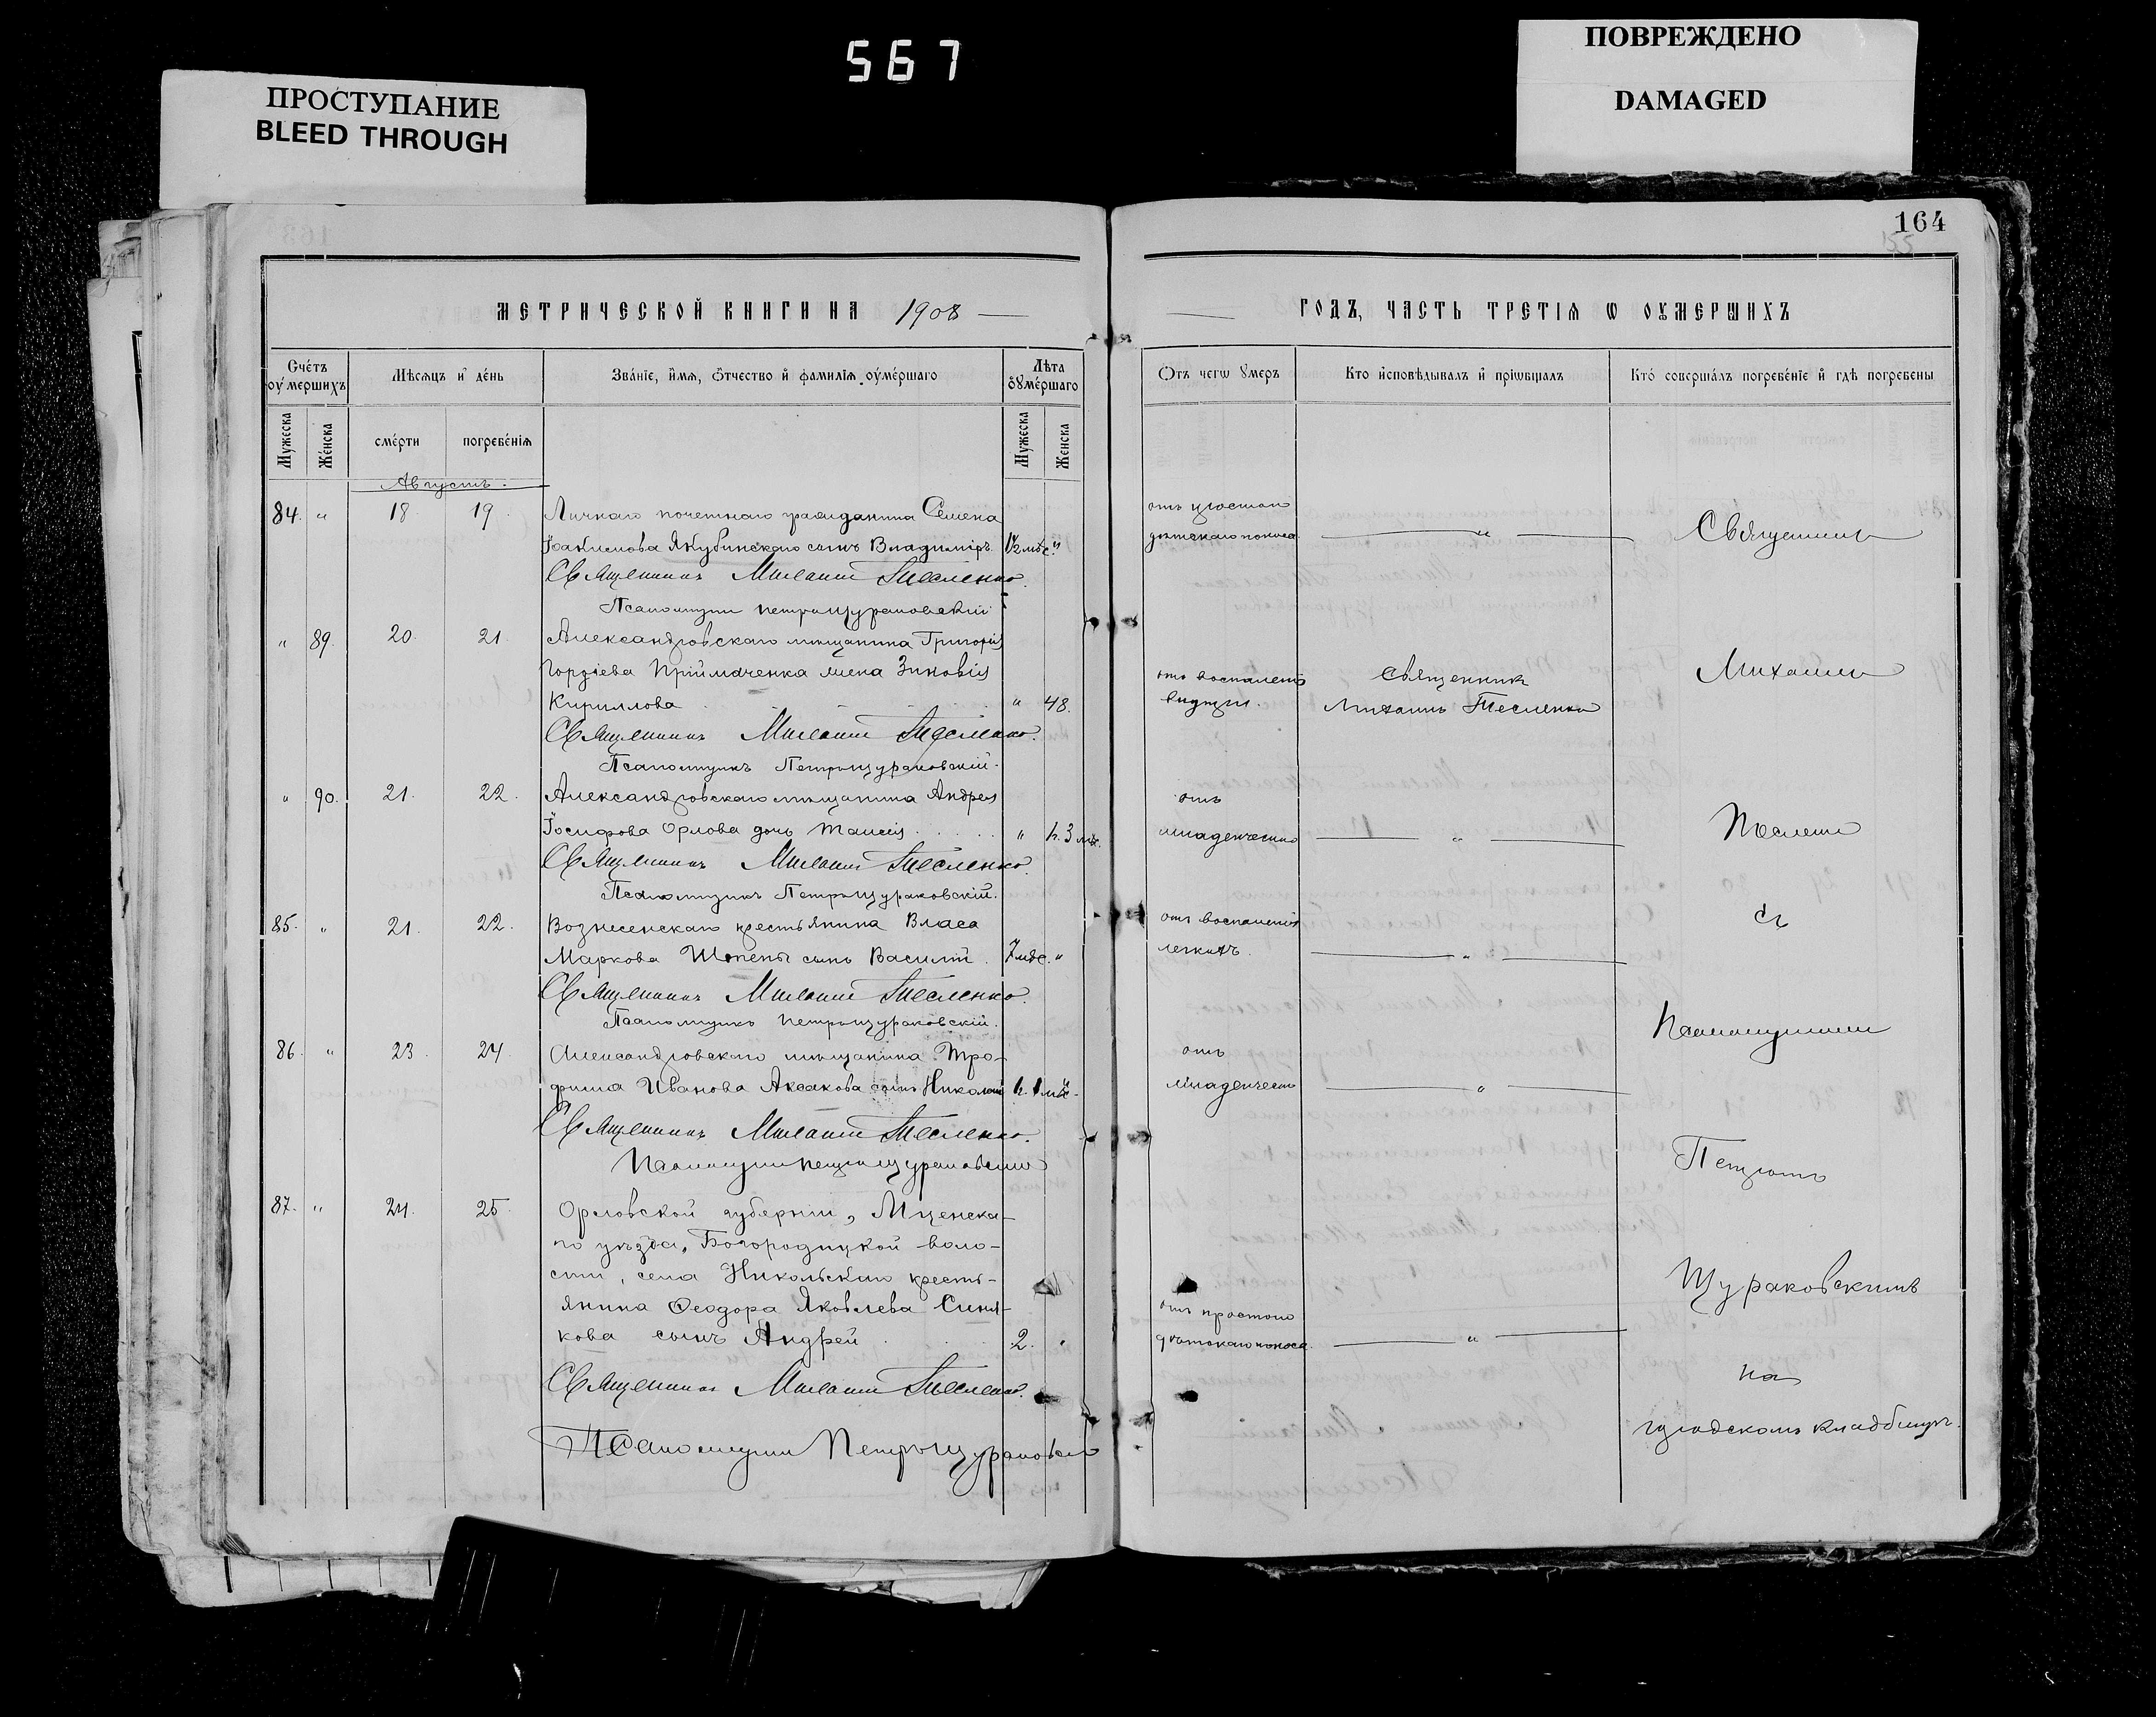 567
ПРОСТУПАНИЕ
BLEED THROUGH
ПОВРЕЖДЕНО
DAMAGED
164
МЕТРИЧЕСКОЙ КНИГИ НА 1908
ГОДЪ, ЧАСТЬ ТРЕТІЯ Ѡ ОУМЕРШИХЪ
Счетъ оумершихъ
Мѣсяцъ и день
Званіе, имя, отчество и фамилія оумершаго
Лѣта оумершаго
Отъ чегѡ умеръ
Кто исповѣдывалъ и пріѡбщалъ
Кто совершалъ погребеніе и гдѣ погребены
Мужеска
Женска
смерти
погребенія
Мужеска
Женска
Августъ.
84. " 18 19 Личнаго почетнаго гражданина Семена
Іоакимова Якубинскаго сынъ Владиміръ 1½ мѣс. "
отъ простого
дѣтскаго поноса
Священникъ Михаилъ Тесленко.
Псаломщикъ Петръ Щураковскій
" 89. 20. 21. Александровскаго мѣщанина Григорія
Гордіева Пріймаченка жена Зиновія
Кириллова " 48.
отъ воспаленія
Священникъ
Михаилъ Тесленко
Священникъ Михаилъ Тесленко.
Псаломщикъ Петръ Щураковскій.
" 90. 21. 22. Александровскаго мѣщанина Андрея
Іосифова Орлова дочь Таисія " 3 мѣс.
отъ
младенческой
Священникъ Михаилъ Тесленко.
Псаломщикъ Петръ Щураковскій.
85. " 21. 22. Вознесенскаго крестьянина Власа
Маркова Шепеты сынъ Василій. 7 мѣс. "
отъ воспаленія
легкихъ.
Священникъ Михаилъ Тесленко.
Псаломщикъ Петръ Щураковскій.
86. " 23. 24. Александровскаго мѣщанина Тро-
фима Иванова Аксакова сынъ Николай 1 мѣс.
отъ
младенческой
Священникъ Михаилъ Тесленко.
Псаломщикъ Петръ Щураковскій
87. " 24. 25. Орловской губерніи, Мценска-
го уѣзда, Богородицкой воло-
сти, села Никольскаго кресть-
янина Ѳеодора Яковлева Синя-
кова сынъ Андрей 2. "
отъ простого
дѣтскаго поноса.
Священникъ Михаилъ Тесленко.
Псаломщикъ Петръ Щураковскій
Священникъ
Михаилъ
Тесленко
съ
Псаломщикомъ
Петромъ
Щураковскимъ
на
городскомъ кладбищѣ.